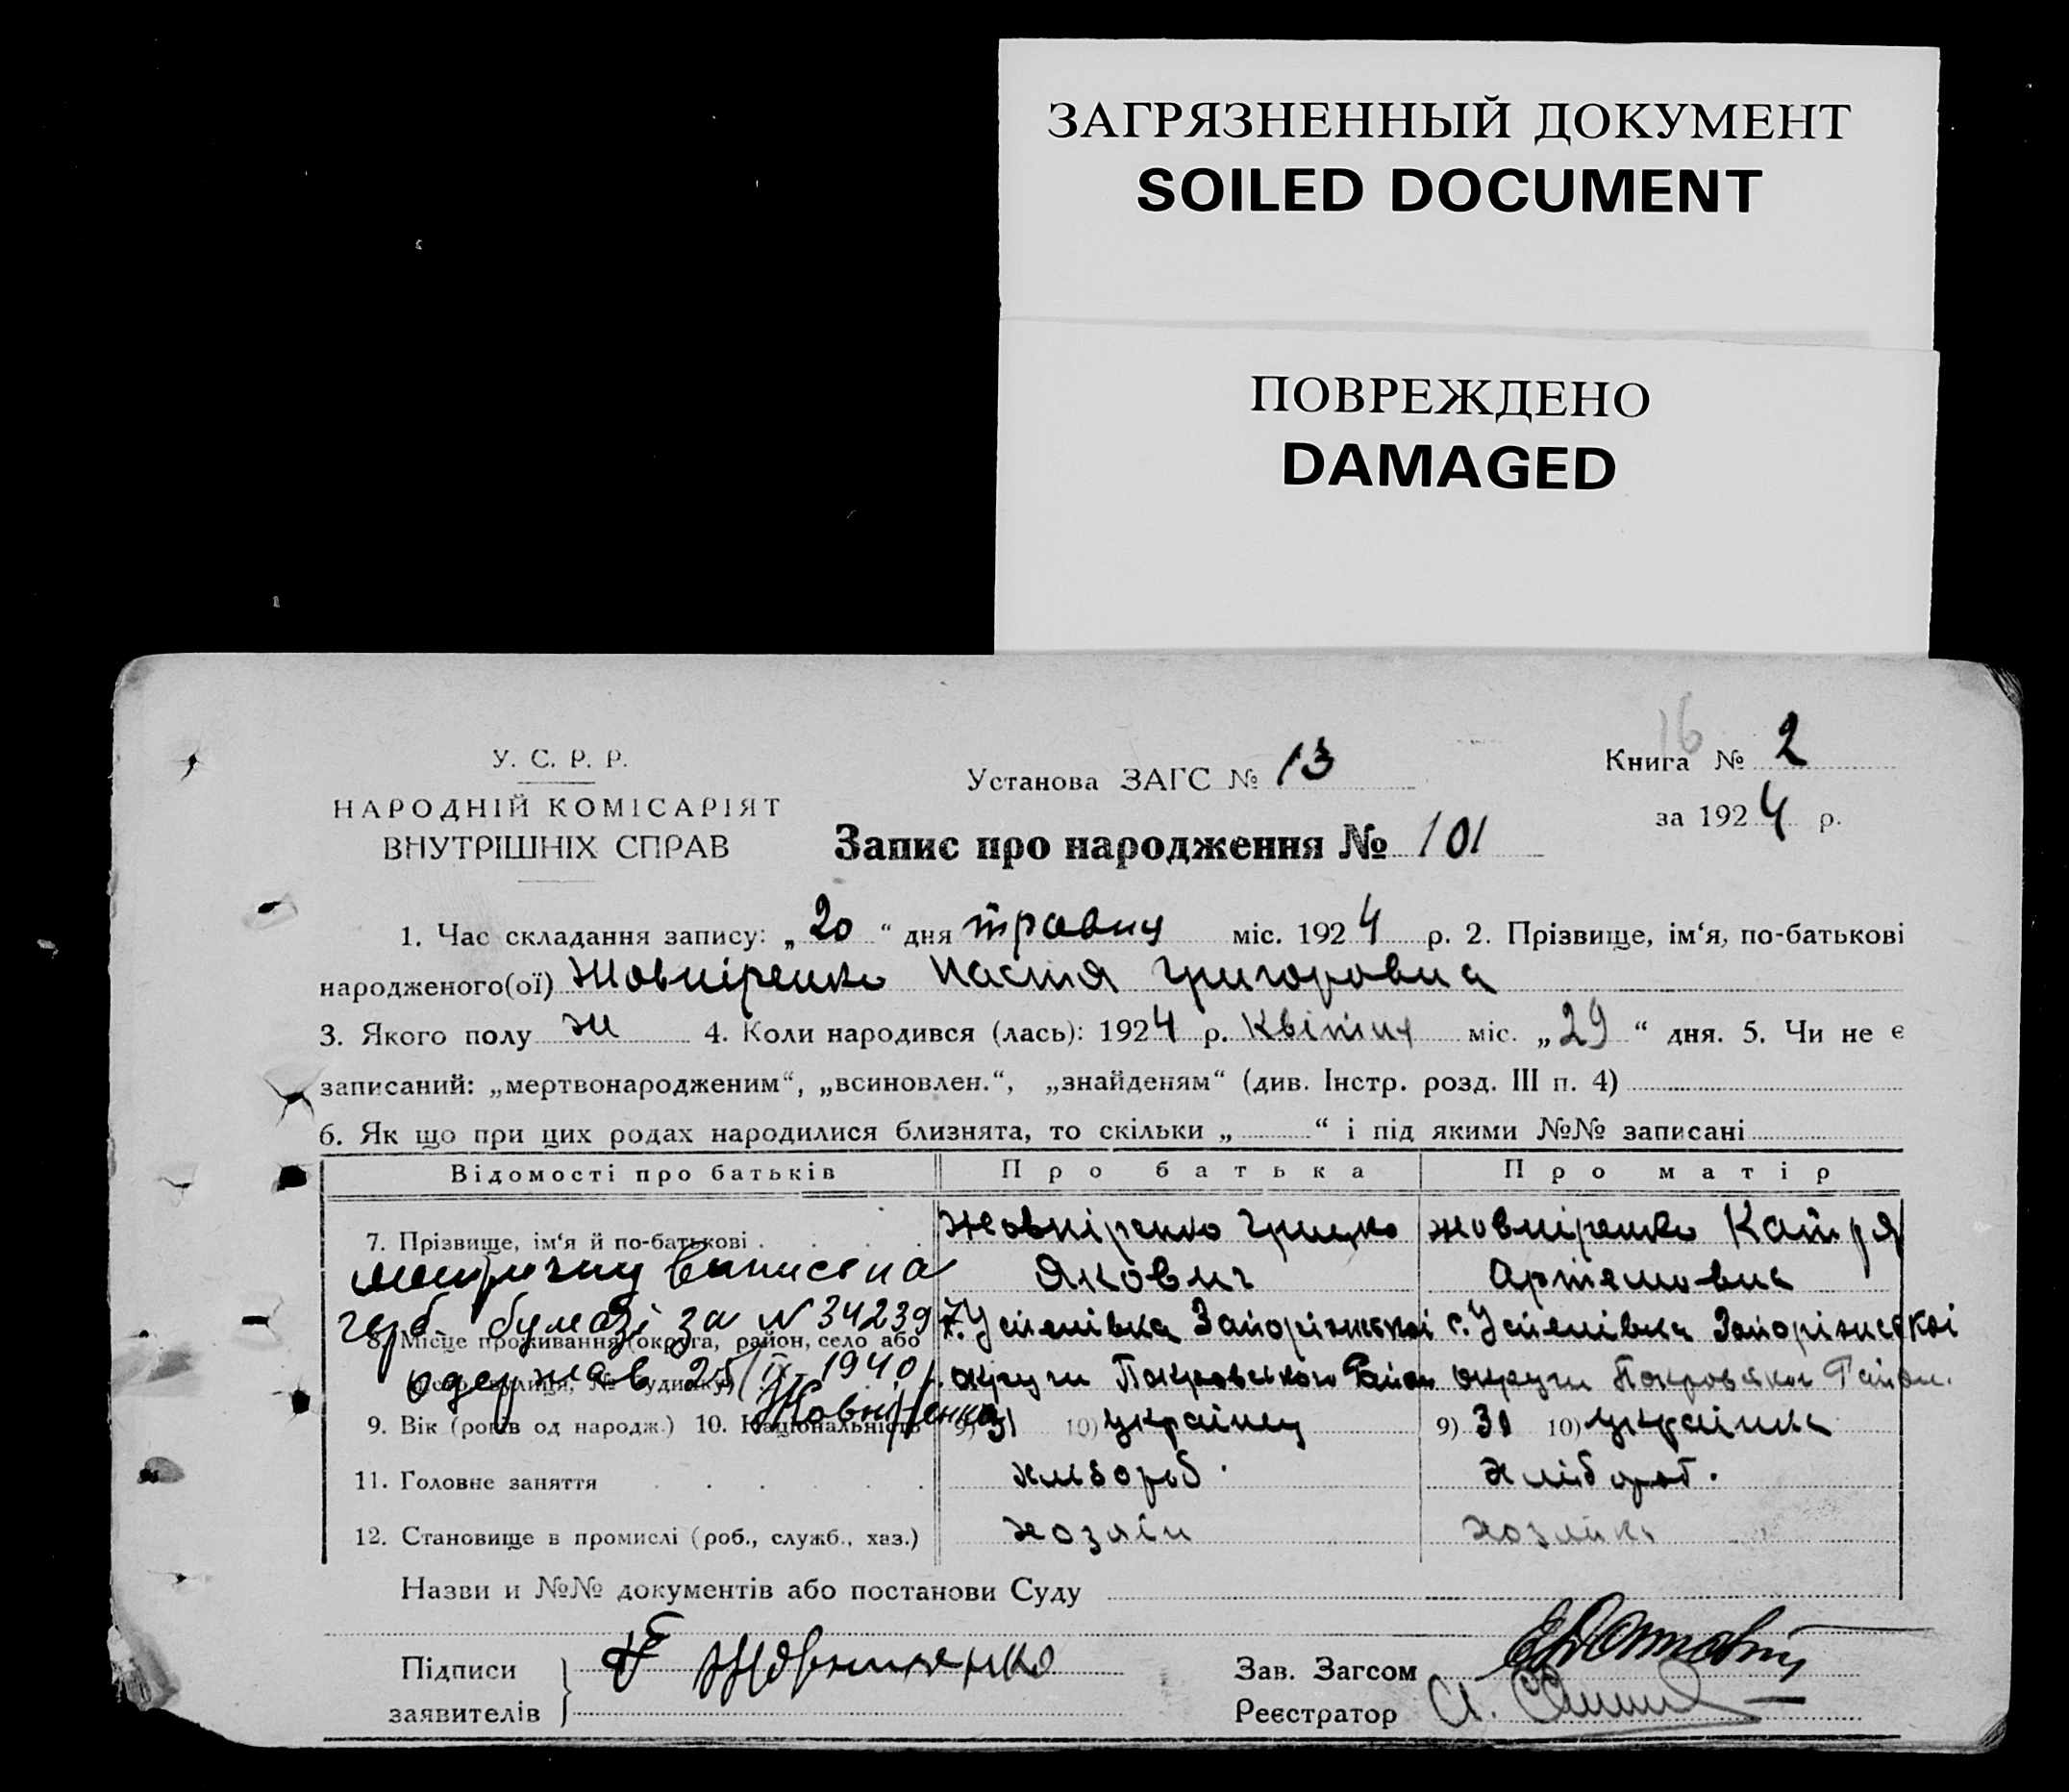 ЗАГРЯЗНЕННЫЙ ДОКУМЕНТ
SOILED DOCUMENT
ПОВРЕЖДЕНО
DAMAGED
16
У. С. Р. Р.
НАРОДНІЙ КОМІСАРІЯТ
ВНУТРІШНІХ СПРАВ
Установа ЗАГС № 13
Книга № 2
за 1924 р.
Запис про народження № 101
1. Час складання запису: „20“ дня травня міс. 1924 р. 2. Прізвище, ім‘я, по-батькові
народженого(ої) Жовніренко Настя Григоровна
3. Якого полу ж 4. Коли народився (лась): 1924 р. Квітня міс. „29“ дня. 5. Чи не є
записаний: „мертвонародженим“, „всиновлен.“, „знайденям“ (див. Інстр. розд. III п. 4)
6. Як що при цих родах народилися близнята, то скільки „ “ і під якими №№ записані
Відомості про батьків Про батька Про матір
7. Прізвище, ім‘я й по-батькові Жовніренко Грицко Жовніренко Катря
Якович Артемовна
метричну выпис на
герб. бумазі за N 34239
одержав 25/IX 1940 р. Жовніренко
8. Місце проживання (округа, район, село або с. Успенівка Запоріжської с. Успенівка Запоріжської
округи Покровського Район округи Покровського Район.
9. Вік (років од народж.) 10. Національність 9) 31 10) українец 9) 31 10) українка
11. Головне заняття хлібороб. хлібороб.
12. Становище в промислі (роб., служб., хаз.) хозяін хозяйка
Назви и №№ документів або постанови Суду
Підписи
заявителів
Зав. Загсом
Реєстратор